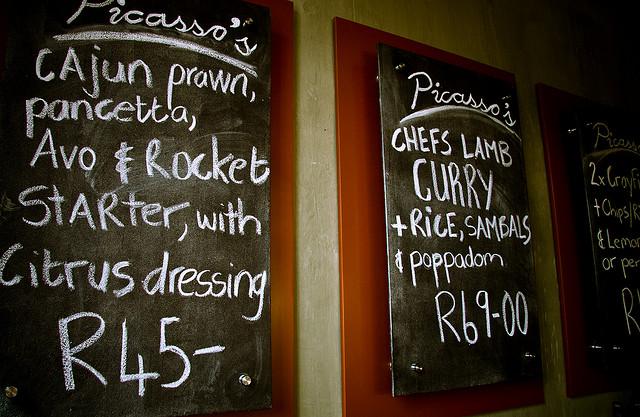 Picasso's
CAjun prawn,
pancetta,
Avo & Rocket
StARter, with
Citrus dressing
R45-
Picasso's
CHEFS LAMB
CURRY
+ RICE, SAMBALS
& poppadom
R69-00
Picasso
2x Cray
+ Chips/
& Lemo
or per
R